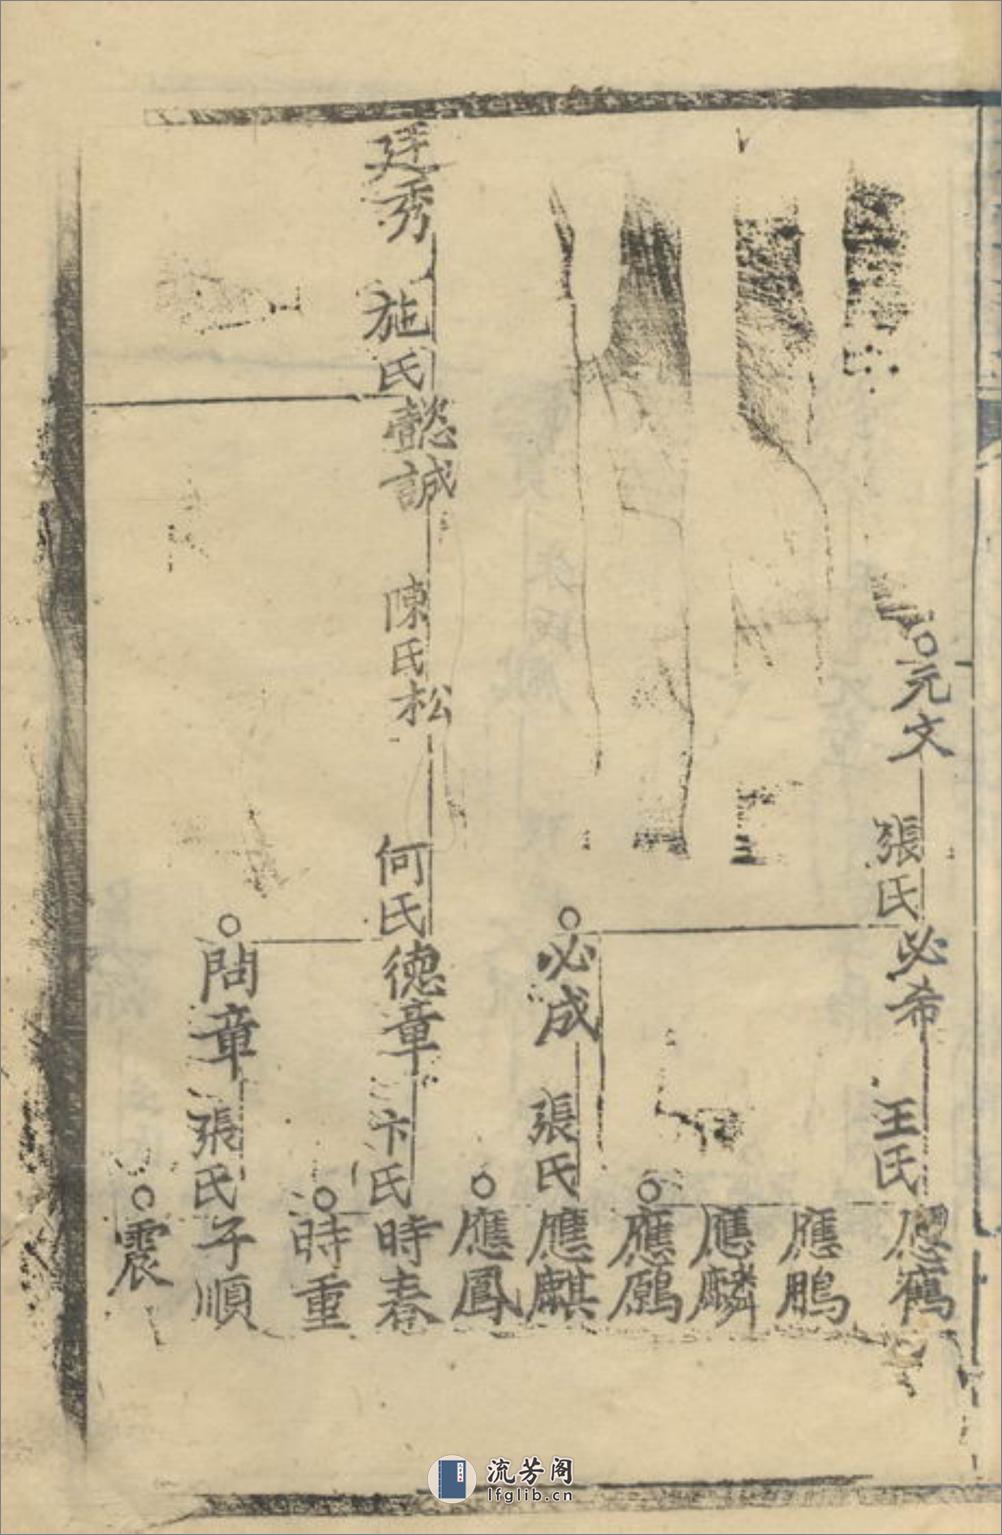 元文 張氏 必希 王氏 應鶴
應鵬
應麟
應鶚
必成 張氏 應麒
應鳳
廷秀 施氏 懿誠 陳氏 松 何氏 德章 卞氏 時春
時重
問章 張氏 子順
震
流芳阁
lfglib.cn